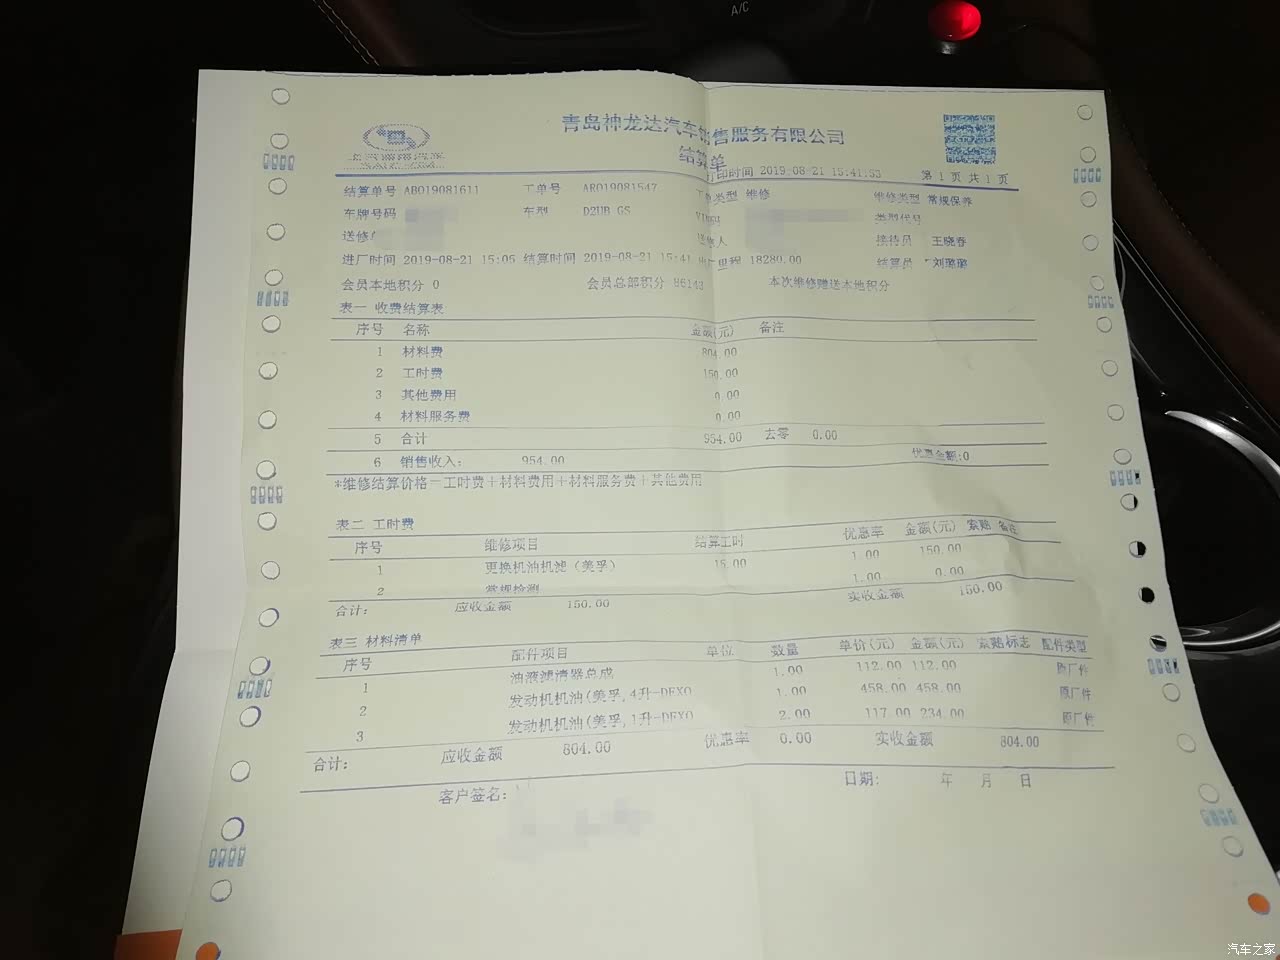 A/C
青岛神龙达汽车销售服务有限公司
结算单
打印时间 2019-08-21 15:41:53 第 1 页 共 1 页
结算单号 AB019081611 工单号 AR019081547 工单类型 维修 维修类型 常规保养
车牌号码 车型 D2UB GS 类型代号
送修 送修人 接待员 王晓春
进厂时间 2019-08-21 15:05 结算时间 2019-08-21 15:41 出厂里程 18280.00 结算员 刘璐璐
会员本地积分 0 会员总部积分 86142 本次维修赠送本地积分
表一 收费结算表
序号 名称 金额(元) 备注
1 材料费 804.00
2 工时费 150.00
3 其他费用 0.00
4 材料服务费 0.00
5 合计 954.00 去零 0.00
6 销售收入: 954.00 优惠金额:0
*维修结算价格=工时费+材料费用+材料服务费+其他费用
表二 工时费
序号 维修项目 结算工时 优惠率 金额(元) 索赔 备注
1 更换机油机滤（美孚） 15.00 1.00 150.00
2 常规检测 1.00 0.00
合计: 应收金额 150.00 实收金额 150.00
表三 材料清单
序号 配件项目 单位 数量 单价(元) 金额(元) 索赔标志 配件类型
1 油液滤清器总成 1.00 112.00 112.00 原厂件
2 发动机机油(美孚,4升-DEXO 1.00 458.00 458.00 原厂件
3 发动机机油(美孚,1升-DEXO 2.00 117.00 234.00 原厂件
合计: 应收金额 804.00 优惠率 0.00 实收金额 804.00
客户签名: 日期: 年 月 日
汽车之家